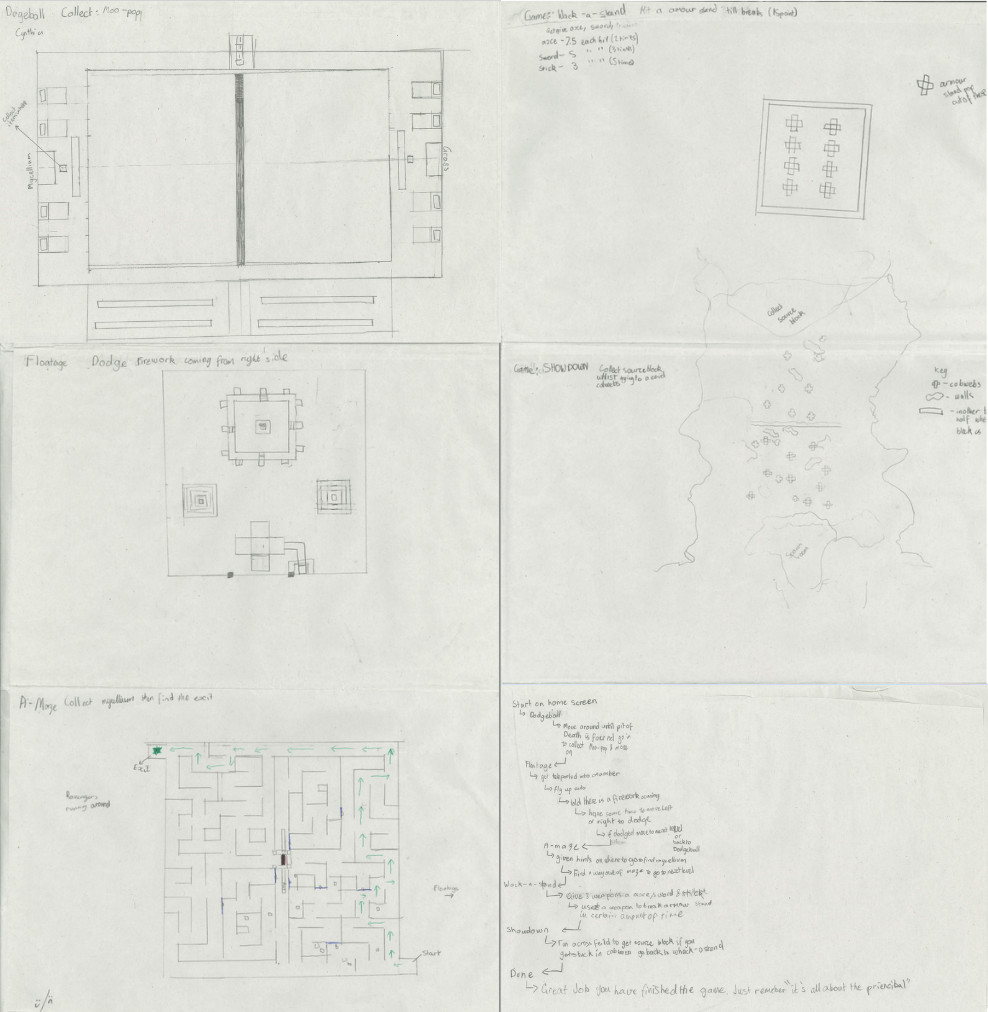 Dogeball Collect: Moo-pop
Cynthia
Collect
Mycellium
Grass
Game: Wack-a-stand Hit a amour stand till breaks (1 spare)
axe - 7.5 each hit (2 times)
sword - 5 " " (3 times)
stick - 3 " " (5 times)
armour
stand
Collect
source
block
Floatage Dodge firework coming from right side
Game: SHOWDOWN Collect source block,
whilst trying to avoid
cobwebs
key
- cobwebs
- walls
Spawn
A-Maze Collect mycellium then find the exit
Exit
running around
Floatage
Start
Start on home screen
Dodgeball
Move around until pit of
Death is find and go in
to collect Moo-pop & move
on
Floatage
get teleported into chamber
Fly up into
told there is a firework coming
have some time to move left
or right to dodge
if dodged move to next level
or
back to
Dodgeball
A-maze
given hints on where to go to find mycellium
Find a way out of maze to go to next level
Wack-a-stand
Give 3 weapons a axe, sword & stick
use a weapon to break armour stand
in certain amount of time
Showdown
Run across field to get source block if you
get stuck in cobweb go back to whack-a-stand
Done
Great Job you have finished the game. Just remeber "it's all about the priencibal"